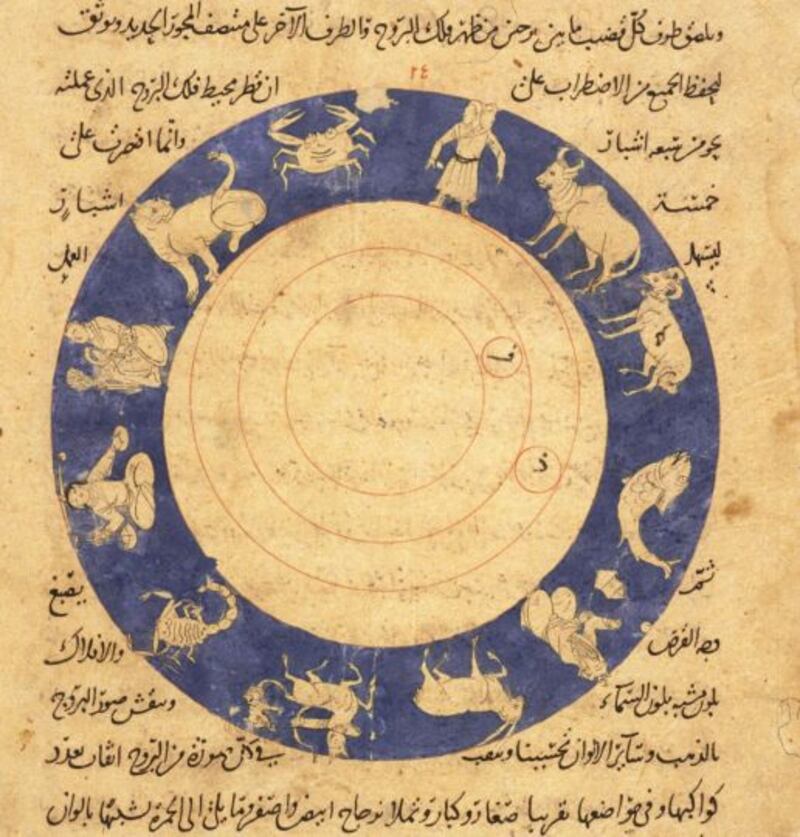 ويلصق طرف كل قضيب ما بين برجين من ظهر فلك البروج والطرف الآخر على منتصف المحور الحديد ويوثق
٢٤
ليحفظ الجميع من الاضطراب على ان قطر محيط فلك البروج الذى عملته
نحو من سبعه اشبار وانما اقتصرت على
خمسة اشبار
ليسهل العمل
ثم يصبغ
وجه القرص والافلاك
بلون مشبه بلون السماء وينقش صور البروج
بالذهب وسائر الالوان تحسينا ويثقب فى كل صورة من البروج اثقاب بعدد
كواكبها وفى مواضعها تقريبا صغار وكبار وتملا بزجاج ابيض واصفر وما الى الحمرة تشبيها بالوان